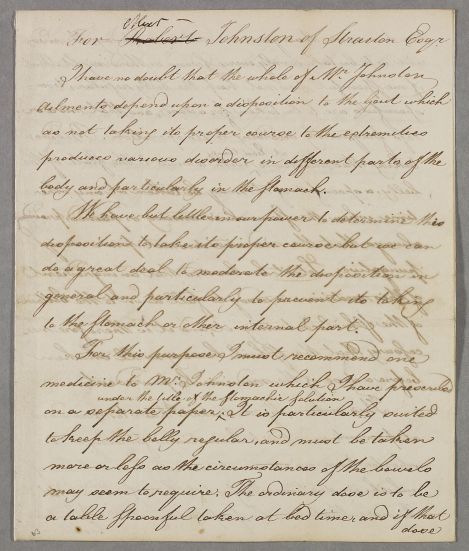 Alexr
For Robert Johnston of Straiton Esqr
I have no doubt that the whole of Mr Johnston
ailments depend upon a disposition to the Gout which
as not taking its proper course to the extremities
produces various disorder in different parts of the
body and particularly in the Stomach.
We have but little in our power to determine this
disposition to take its proper course but we can
do a great deal to moderate the disposition in
general and particularly to prevent its taking
to the Stomach or other internal part.
For this purpose I must recommend one
medicine to Mr Johnston which I have prescribed
under the title of the Stomachic Solution
on a separate paper. It is particularly suited
to keep the belly regular, and must be taken
more or less as the circumstances of the bowels
may seem to require. The ordinary dose is to be
a table Spoonful taken at bed time, and if that
dose